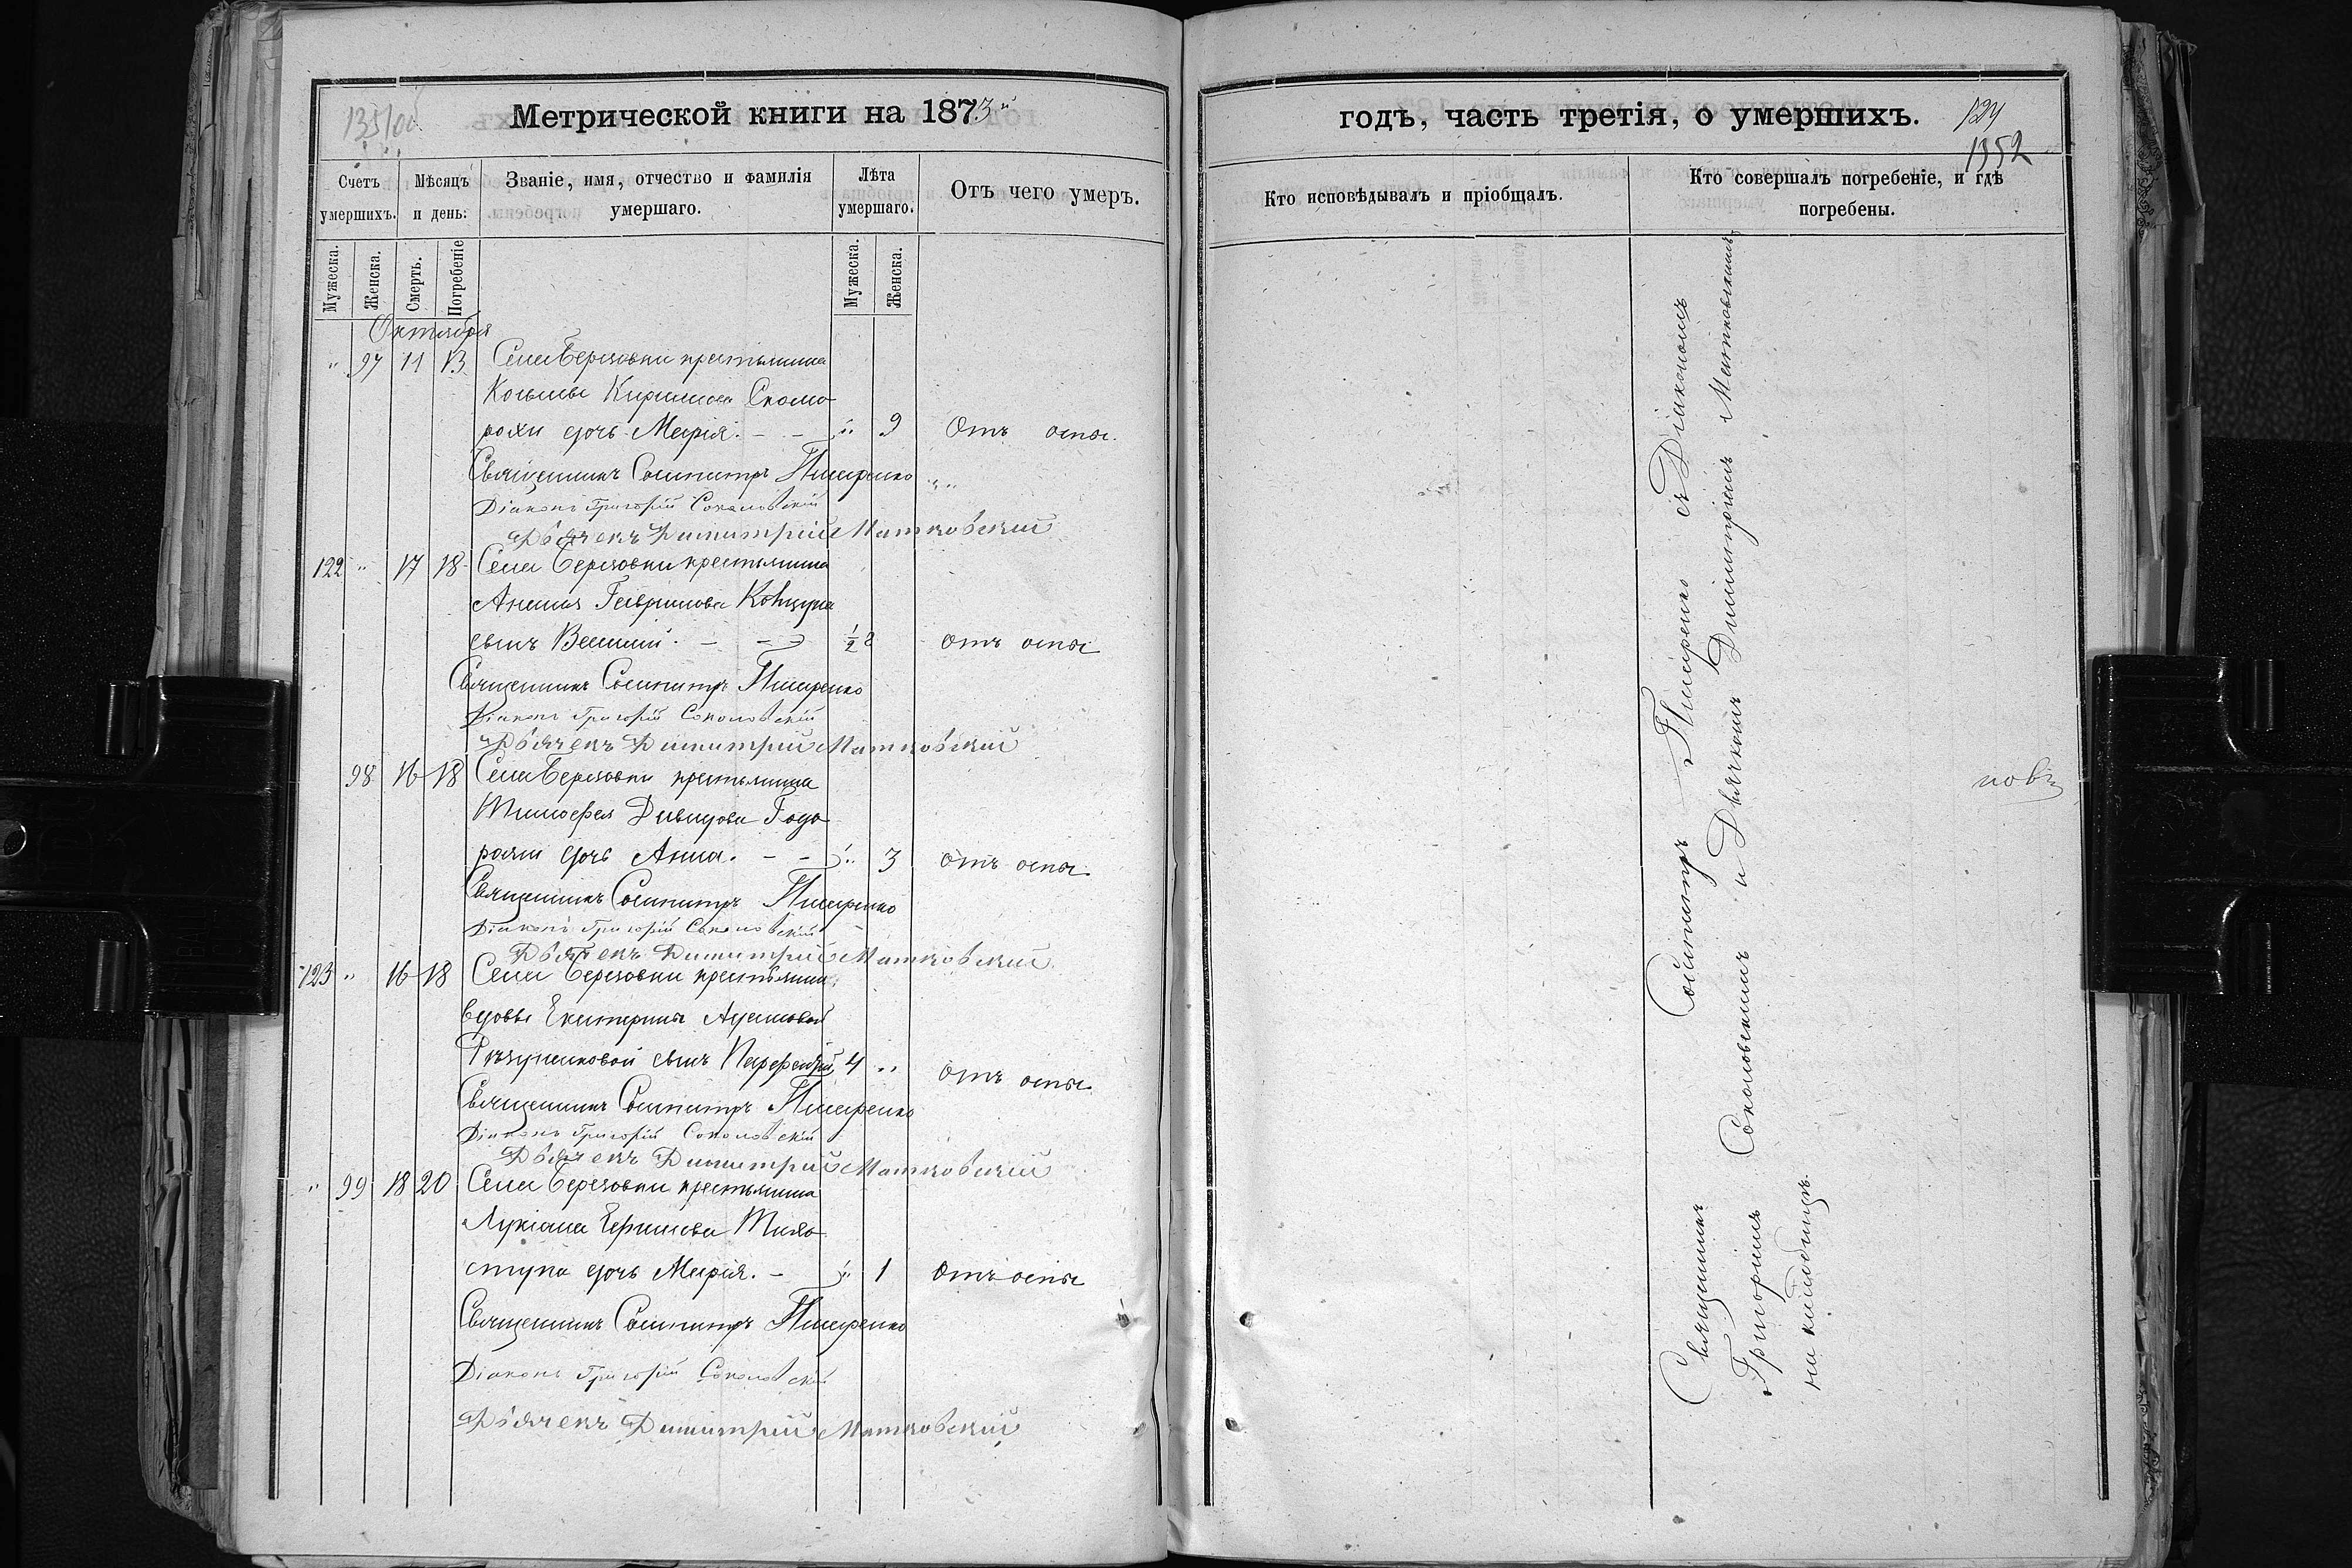 Метрической книги на 1873й
Счетъ умершихъ.
Мѣсяцъ и день:
Званіе, имя, отчество и фамилія умершаго.
Лѣта умершаго.
Отъ чего умеръ.
Мужеска.
Женска.
Смерть.
Погребеніе
Мужеска.
Женска.
Октября
" 97 11 13 Села Березовки крестьянина
Косьмы Кирилова Скомо-
рохи дочь Марія. - - " 9 Отъ оспы.
Священникъ Сосипатръ Писаренко
Діаконъ Григорій Соколовскій
Дьячекъ Димитрій Матковскій
122 " 17 18 Села Березовки крестьянина
Гаврилова
сынъ Василій. - - ½ отъ оспы
Священникъ Сосипатръ Писаренко
Діаконъ Григорій Соколовскій
Дьячекъ Димитрій Матковскій
98 16 18 Села Березовки крестьянина
Тимофея Давидова
дочь Анна. - - " 3 отъ оспы.
Священникъ Сосипатръ Писаренко
Діаконъ Григорій Соколовскій
Дьячекъ Димитрій Матковскій
123 " 16 18 Села Березовки крестьянина
вдовы Екатерины
сынъ 4 " отъ оспы.
Священникъ Сосипатръ Писаренко
Діаконъ Григорій Соколовскій
Дьячекъ Димитрій Матковскій
" 99 18 20 Села Березовки крестьянина
Лукіана
дочь Марія. - " 1 Отъ оспы
Священникъ Сосипатръ Писаренко
Діаконъ Григорій Соколовскій
Дьячекъ Димитрій Матковскій
годъ, часть третія, о умершихъ.
1352
Кто исповѣдывалъ и пріобщалъ.
Кто совершалъ погребеніе, и гдѣ
погребены.
Священникъ Сосипатръ Писаренко съ Діакономъ
Григоріемъ Соколовскимъ и Дьячкомъ Димитріемъ Матковскимъ
на кладбищѣ.